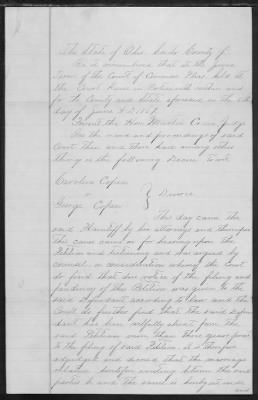 The State of Ohio County
Be it remembered that at the June
Term of the Court of Common Pleas held at
the Court House in within and
for the County and State aforesaid on the
day of June A.D.
Present the Hon Judge
In the record and proceedings of said
Court then and there had among other
things is the following Decree To wit
Caroline
vs
George } Divorce
This day came the
said Plaintiff by her attorney and thereupon
This cause came on for hearing upon the
Petition and testimony and was argued by
counsel on consideration whereof the Court
do find that due notice of the filing and
pendency of this Petition was given to the
said Defendant according to law and the
Court do further find that the said defen
dant has been wilfully absent from the
said Petitioner more than three years prior
to the filing of said Petition. It is therefore
adjudged and decreed that the marriage
relation heretofore existing between the said
parties be and the same is hereby